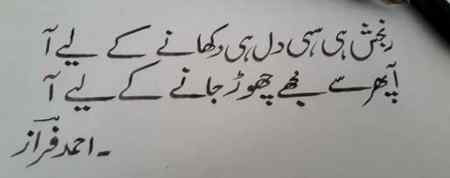 رنجش ہی سہی دل ہی دکھانے کے لیے آ
آ پھر سے مجھے چھوڑ جانے کے لیے آ
۔ احمد فراز